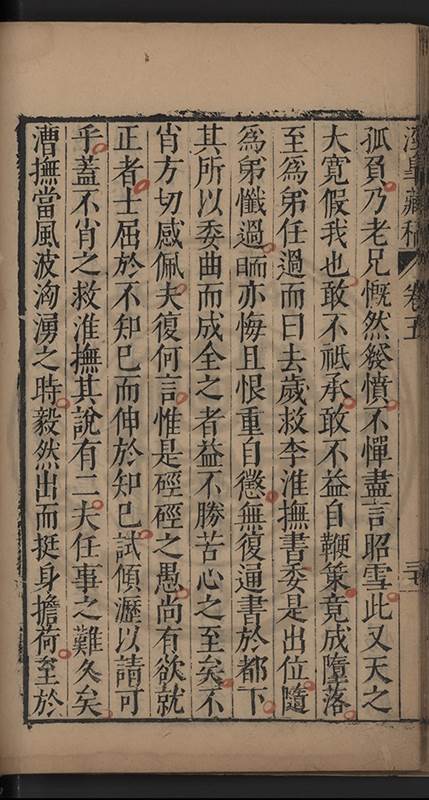 涇皋藏稿 卷五 三十
孤負乃老兄慨然發憤不憚盡言昭雪此又天之
大寬假我也敢不祗承敢不益自鞭策竟成墮落
至爲弟任過而曰去歲救李淮撫書委是出位隨
爲弟懺過吾亦悔且恨重自懲無復通書於都下
其所以委曲而成全之者益不勝苦心之至矣不
肖方切感佩夫復何言惟是硜硜之愚尚有欲就
正者士屈於不知已而伸於知已試傾瀝以請可
乎蓋不肖之救淮撫其說有二夫任事之難久矣
漕撫當風波洶湧之時毅然出而挺身擔荷至於